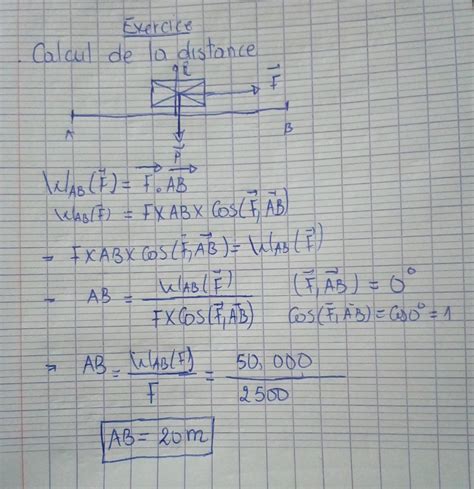 Exercice
Calcul de la distance
R⃗ F⃗
A B
P⃗
W_AB(F⃗) = F⃗ . AB⃗
W_AB(F⃗) = F×AB×Cos(F⃗,AB⃗)
- F×AB×Cos(F⃗,AB⃗) = W_AB(F⃗)
- AB = W_AB(F⃗) / F×Cos(F⃗,AB⃗) (F⃗,AB⃗) = 0°
Cos(F⃗,AB⃗) = Cos0° = 1
⇒ AB = W_AB(F⃗) / F = 50,000 / 2500
AB = 20m